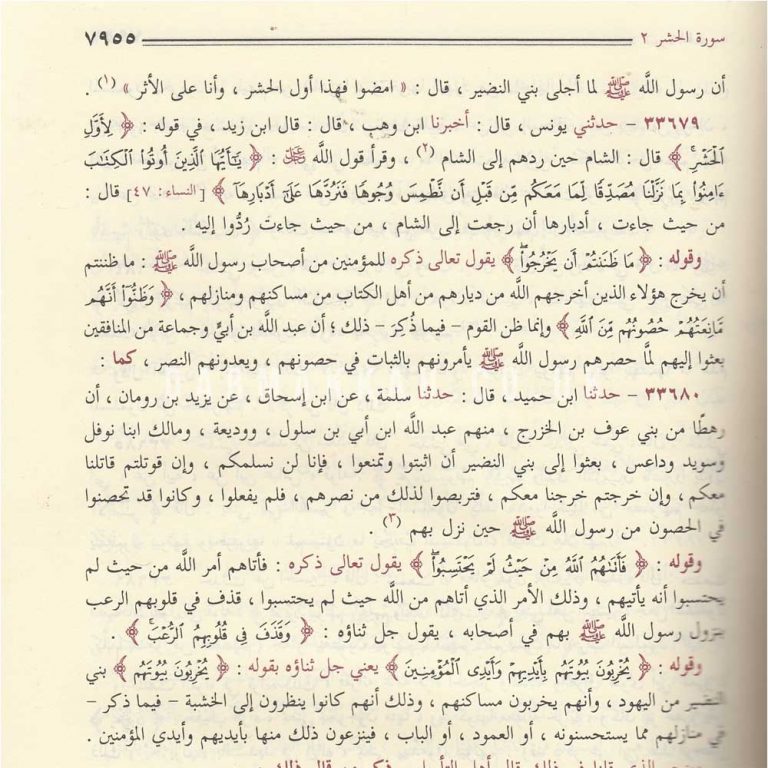 سورة الحشر ٢ ٧٩٥٥
أن رسول اللَّه ﷺ لما أجلى بني النضير ، قال : « امضوا فهذا أول الحشر ، وأنا على الأثر » (١) .
٣٣٦٧٩ - حدثني يونس ، قال : أخبرنا ابن وهب ، قال : قال ابن زيد ، في قوله : ﴿ لِأَوَّلِ
الْحَشْرِ ﴾ قال : الشام حين ردهم إلى الشام (٢) ، وقرأ قول اللَّه ﷻ : ﴿ يَٰٓأَيُّهَا الَّذِينَ أُوتُوا الْكِتَٰبَ
ءَامِنُوا بِمَا نَزَّلْنَا مُصَدِّقًا لِّمَا مَعَكُم مِّن قَبْلِ أَن نَّطْمِسَ وُجُوهًا فَنَرُدَّهَا عَلَىٰٓ أَدْبَارِهَآ ﴾ [ النساء : ٤٧ ] قال :
من حيث جاءت ، أدبارها أن رجعت إلى الشام ، من حيث جاءت رُدُّوا إليه .
وقوله : ﴿ مَا ظَنَنتُمْ أَن يَخْرُجُوا ﴾ يقول تعالى ذكره للمؤمنين من أصحاب رسول اللَّه ﷺ : ما ظننتم
أن يخرج هؤلاء الذين أخرجهم اللَّه من ديارهم من أهل الكتاب من مساكنهم ومنازلهم ، ﴿ وَظَنُّوٓا أَنَّهُم
مَّانِعَتُهُمْ حُصُونُهُم مِّنَ اللَّهِ ﴾ وإنما ظن القوم - فيما ذُكِرَ - ذلك ؛ أن عبد اللَّه بن أبيٍّ وجماعة من المنافقين
بعثوا إليهم لمَّا حصرهم رسول اللَّه ﷺ يأمرونهم بالثبات في حصونهم ، ويعدونهم النصر ، كما :
٣٣٦٨٠ - حدثنا ابن حميد ، قال : حدثنا سلمة ، عن ابن إسحاق ، عن يزيد بن رومان ، أن
رهطًا من بني عوف بن الخزرج ، منهم عبد اللَّه ابن أبي بن سلول ، ووديعة ، ومالك ابنا نوفل
وسويد وداعس ، بعثوا إلى بني النضير أن اثبتوا وتمنعوا ، فإنا لن نسلمكم ، وإن قوتلتم قاتلنا
معكم ، وإن خرجتم خرجنا معكم ، فتربصوا لذلك من نصرهم ، فلم يفعلوا ، وكانوا قد تحصنوا
في الحصون من رسول اللَّه ﷺ حين نزل بهم (٣) .
وقوله : ﴿ فَأَتَىٰهُمُ اللَّهُ مِنْ حَيْثُ لَمْ يَحْتَسِبُوا ﴾ يقول تعالى ذكره : فأتاهم أمر اللَّه من حيث لم
يحتسبوا أنه يأتيهم ، وذلك الأمر الذي أتاهم من اللَّه حيث لم يحتسبوا ، قذف في قلوبهم الرعب
بنزول رسول اللَّه ﷺ بهم في أصحابه ، يقول جل ثناؤه : ﴿ وَقَذَفَ فِي قُلُوبِهِمُ الرُّعْبَ ﴾ .
وقوله : ﴿ يُخْرِبُونَ بُيُوتَهُم بِأَيْدِيهِمْ وَأَيْدِي الْمُؤْمِنِينَ ﴾ يعني جل ثناؤه بقوله : ﴿ يُخْرِبُونَ بُيُوتَهُم ﴾ بني
النضير من اليهود ، وأنهم يخربون مساكنهم ، وذلك أنهم كانوا ينظرون إلى الخشبة - فيما ذكر -
في منازلهم مما يستحسنونه ، أو العمود ، أو الباب ، فينزعون ذلك منها بأيديهم وأيدي المؤمنين .